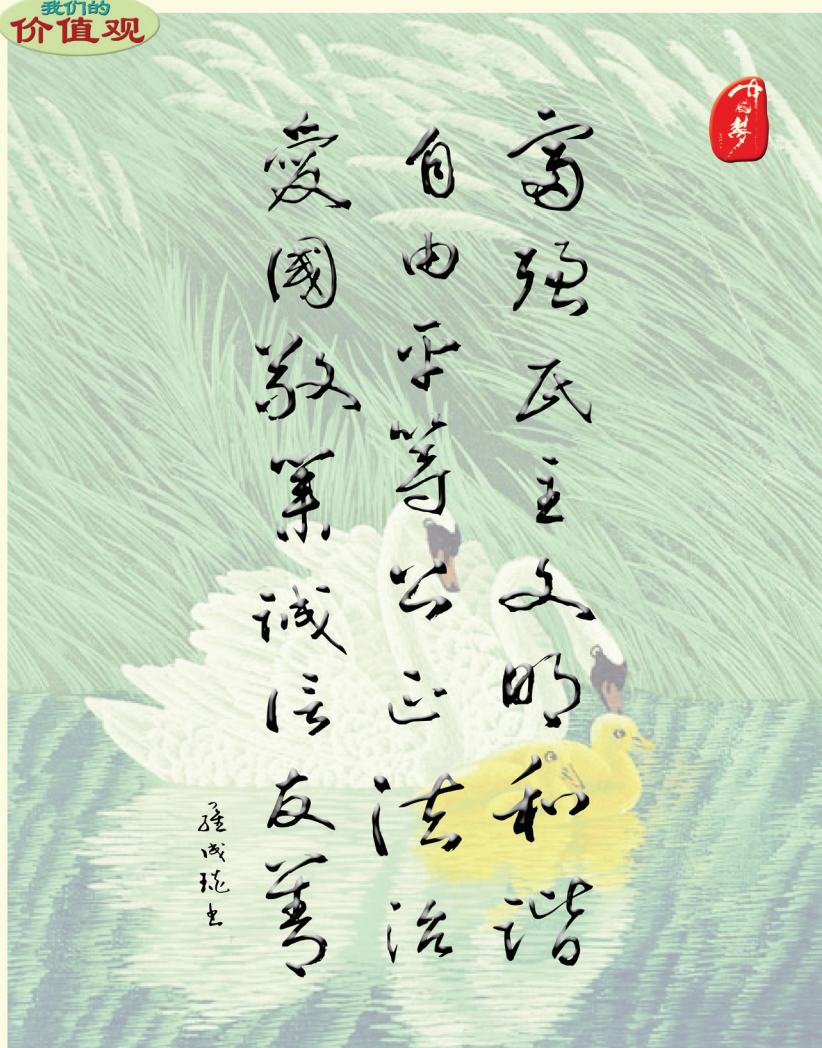 我们的
价值观
中国梦
富强民主文明和谐
自由平等公正法治
愛國敬業誠信友善
羅成琉书